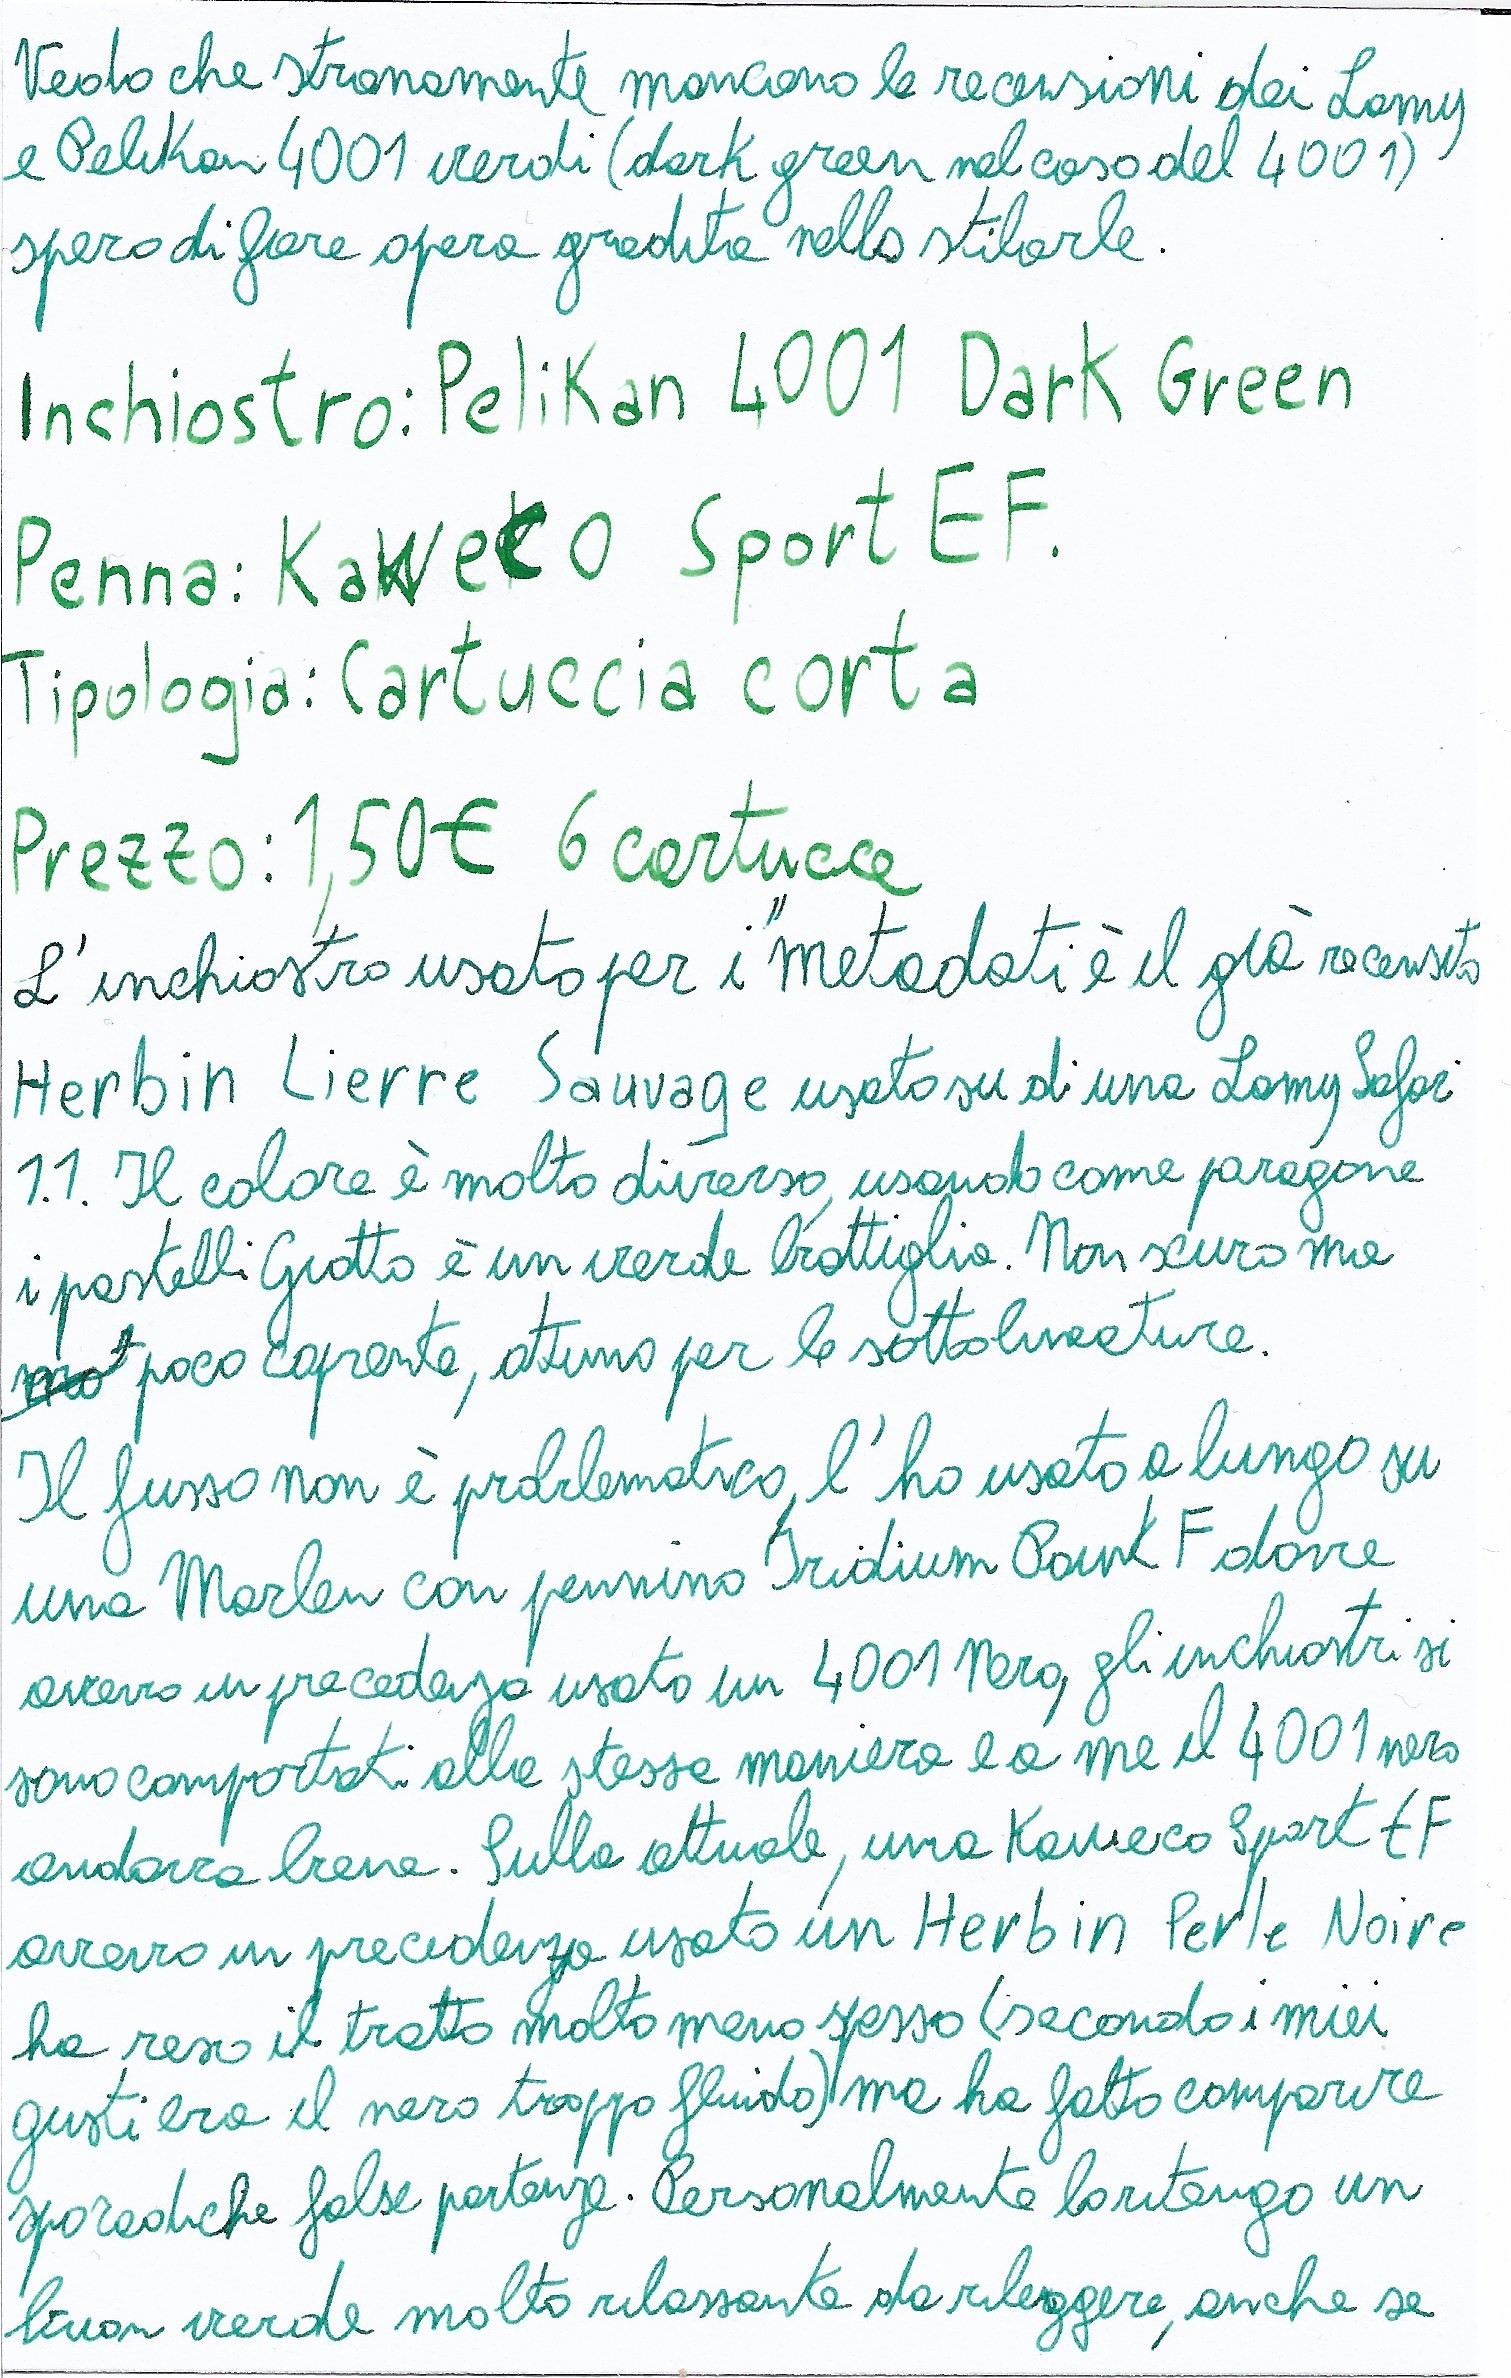 Vedo che stranamente mancano le recensioni dei Lamy
e Pelikan 4001 verdi (dark green nel caso del 4001)
spero di fare opera gradita nello stilarle.
Inchiostro: Pelikan 4001 Dark Green
Penna: Kaweco Sport EF.
Tipologia: Cartuccia corta
Prezzo: 1,50€ 6 cartucce
L'inchiostro usato per i "metadati è il già recensito
Herbin Lierre Sauvage usato su di una Lamy Safari
1.1. Il colore è molto diverso, usando come paragone
i pastelli Giotto è un verde bottiglia. Non scuro ma
poco coprente, ottimo per le sottolineature.
Il fusso non è problematico, l'ho usato a lungo su
una Marlen con pennino Iridium Point F dove
avevo in precedenza usato un 4001 Nero, gli inchiostri si
sono comportati alla stessa maniera e a me il 4001 nero
andava bene. Sulla attuale, una Kaweco Sport EF
avevo in precedenza usato un Herbin Perle Noire
ha reso il tratto molto meno spesso (secondo i miei
gusti era il nero troppo fluido) ma ha fatto comparire
sporadiche false partenze. Personalmente lo ritengo un
buon verde molto rilassante da rileggere, anche se